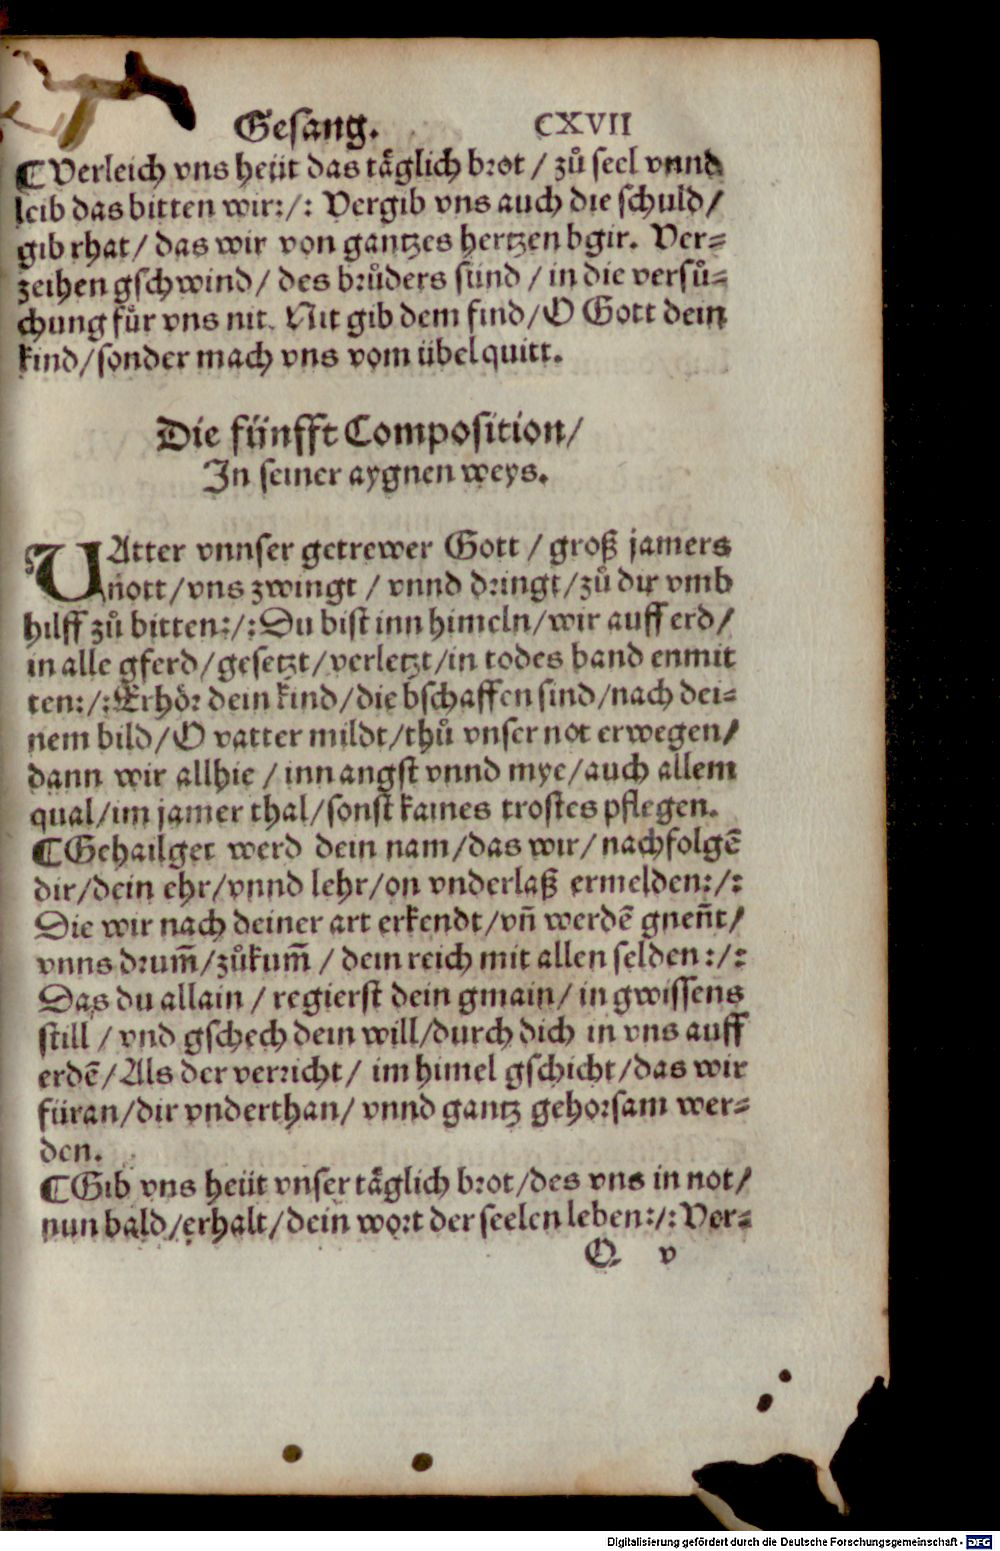 Gesang. CXVII
¶ Verleich vns heüt das täglich brot / zů seel vnnd
leib das bitten wir:/: Vergib vns auch die schuld/
gib rhat/ das wir von gantzes hertzen bgir. Ver⸗
zeihen gschwind/ des brůders sünd / in die versů⸗
chung für vns nit. Nit gib dem find/O Gott dein
kind/sonder mach vns vom übel quitt.
Die fünfft Composition/
In seiner aygnen weys.
VAtter vnnser getrewer Gott / groß jamers
nott/vns zwingt / vnnd dringt/zů dir vmb
hilff zů bitten:/:Du bist inn himeln/wir auff erd/
in alle gferd/gesetzt/verletzt/in todes band enmit
ten:/:Erhör dein kind/die bschaffen sind/nach dei⸗
nem bild/O vatter mildt/thů vnser not erwegen/
dann wir allhie / inn angst vnnd mye/auch allem
qual/im jamer thal/sonst kaines trostes pflegen.
¶Gehailget werd dein nam/das wir/nachfolgē
dir/dein ehr/vnnd lehr/on vnderlaß ermelden:/:
Die wir nach deiner art erkendt/vn̄ werdē gnen̄t/
vnns drum̄/zůkum̄ / dein reich mit allen selden:/:
Das du allain / regierst dein gmain/ in gwissens
still / vnd gschech dein will/durch dich in vns auff
erdē/Als der verricht/ im himel gschicht/das wir
füran/dir vnderthan/ vnnd gantz gehorsam wer⸗
den.
¶Gib vns heüt vnser täglich brot/des vns in not/
nun bald/erhalt/dein wort der seelen leben:/:Ver⸗
O v
Digitalisierung gefördert durch die Deutsche Forschungsgemeinschaft - DFG